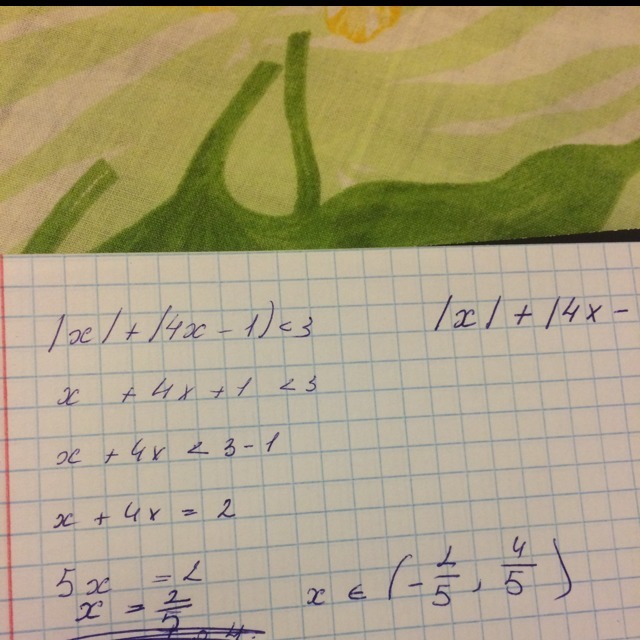 |x| + |4x - 1| < 3
|x| + |4x -
x + 4x + 1 < 3
x + 4x < 3 - 1
x + 4x = 2
5x = 2
x = 2/5
x ∈ (-2/5, 4/5)